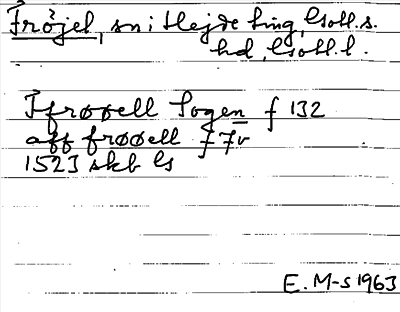 Fröjel, sn i Hejde ting, Gotl. s.
hd, Gotl. l.
J frøøell Sogen f 132
aff frøøell f 7v
1523 skb
E. M-s 1963